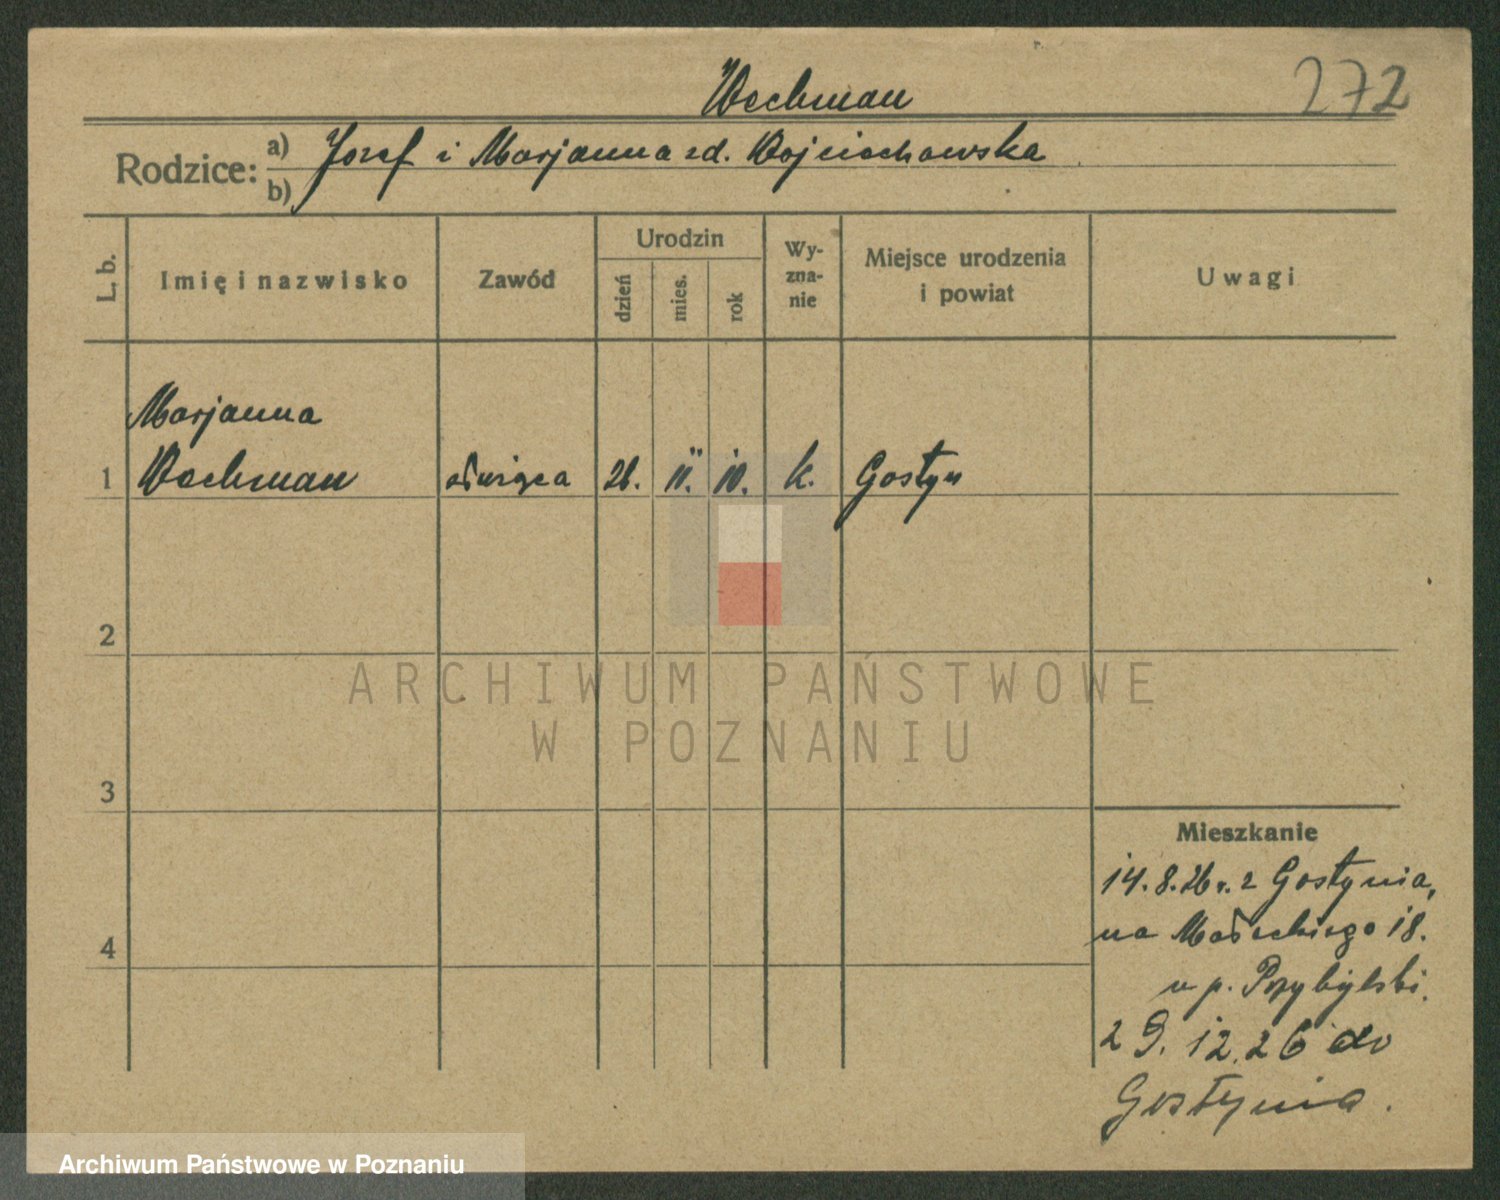 Wechman
272
Rodzice:
a) Józef i Marjanna zd. Wojciechowska
b)
L. b.
Imię i nazwisko
Zawód
Urodzin
dzień
mies.
rok
Wy-
zna-
nie
Miejsce urodzenia
i powiat
Uwagi
Marjanna
1 Wechman służąca 26. II. 10. k. Gostyn
2
3
4
Mieszkanie
14.8.26 r. z Gostynia,
na Małeckiego 18.
u p. Przybylski.
29.12.26 do
Gostynia.
ARCHIWUM PAŃSTWOWE
W POZNANIU
Archiwum Państwowe w Poznaniu